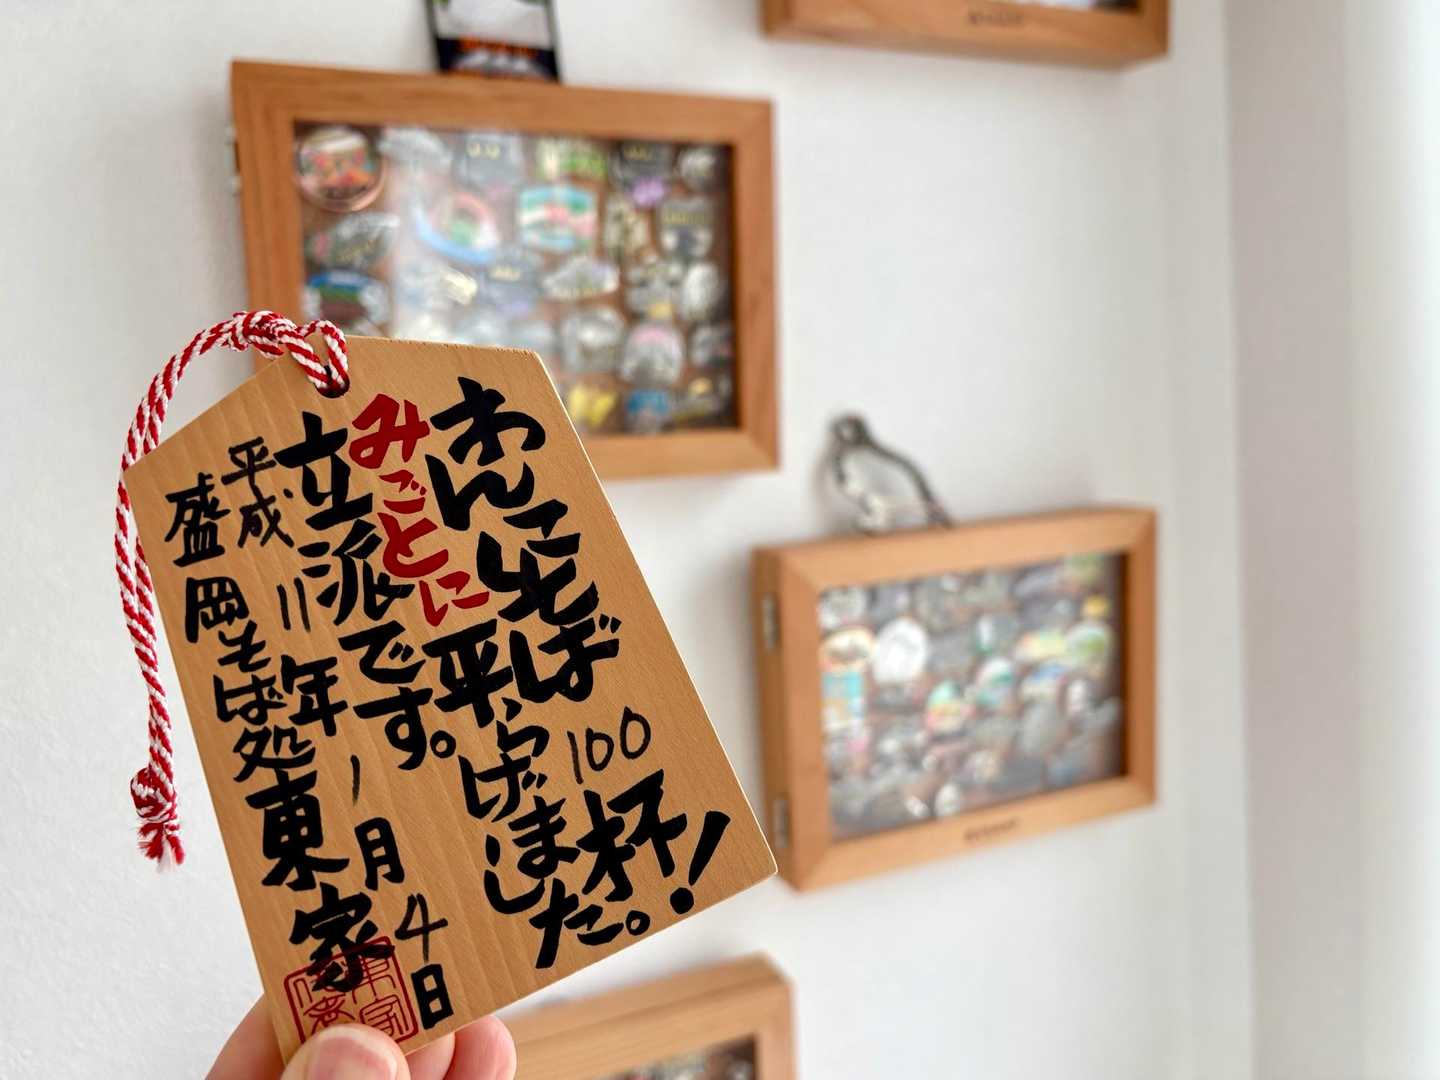 わんこそば100杯!
みごとに平らげました。
立派です。
平成11年1月4日
盛岡そば処東家